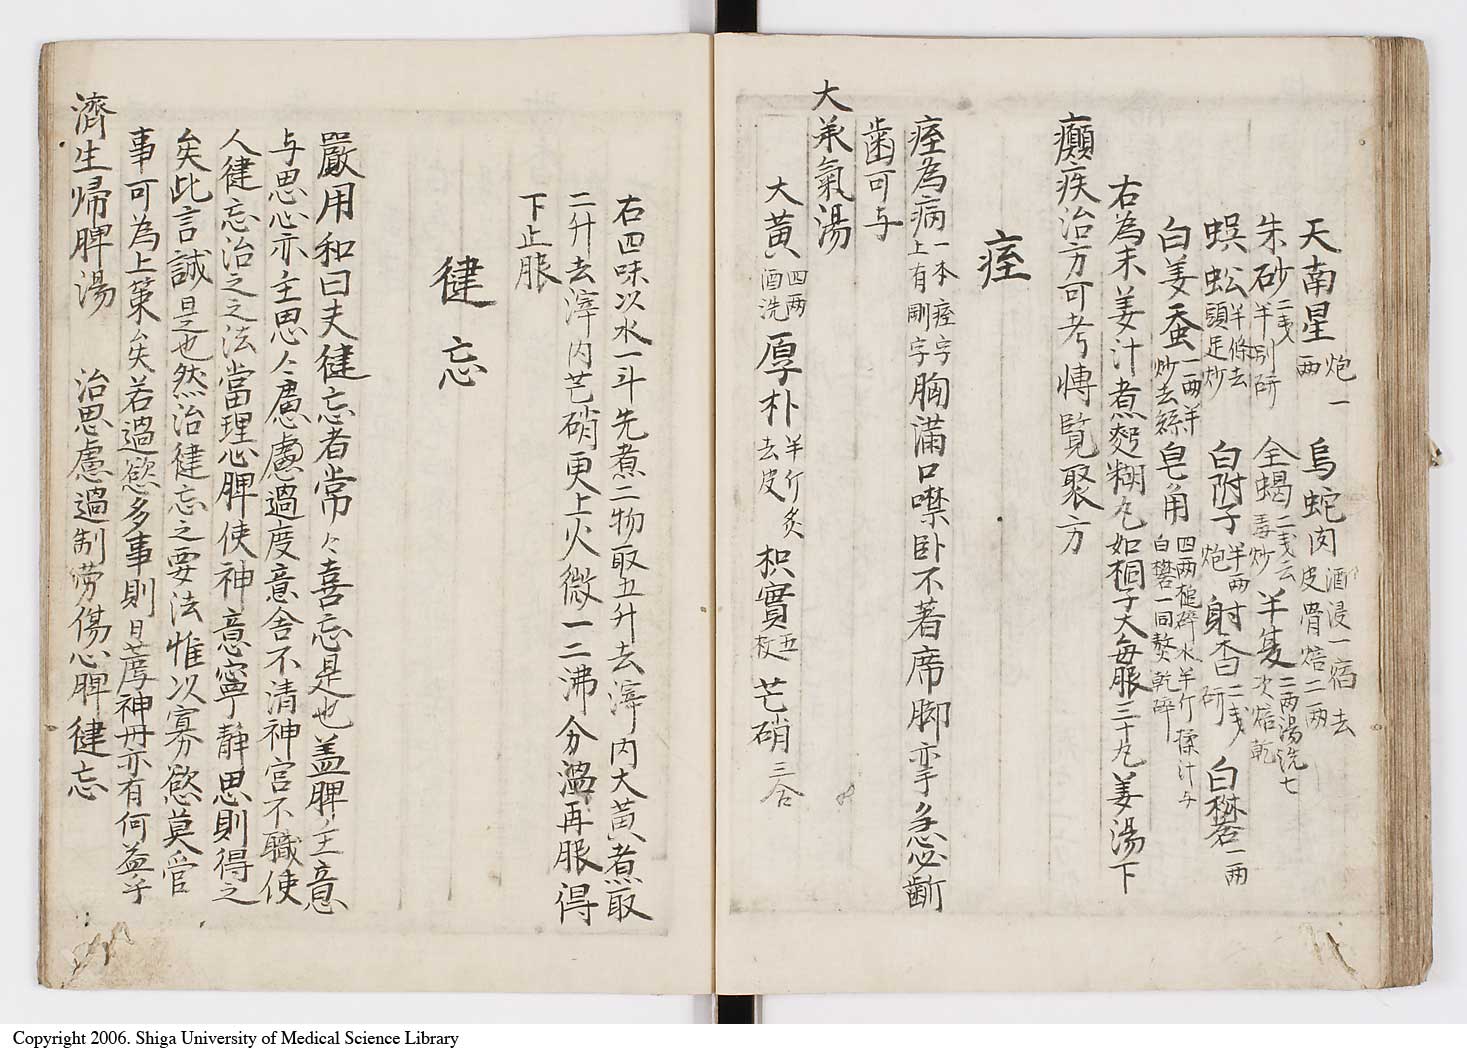 天南星 炮一兩 烏蛇肉 酒浸一宿去皮骨焙二兩
朱砂 二戔半別研 全蝎 二戔去毒炒 半夏 二兩湯洗七次焙乾
蜈蚣 半條去頭足炒 白附子 半兩炮 射香 二戔研 白礬 一兩
白姜蚕 一兩半炒去絲 皂角 四兩槌碎水半斤揉汁与白礬一同熬乾碎
右為末姜汁煮麪糊丸如梧子大每服三十丸姜湯下
癲疾治方可考愽覧聚方
痓
痓為病 一本痓字上有剛字 胸滿口噤卧不著席脚亦挛急必齘
歯可与
大承氣湯
大黃 四兩酒洗 厚朴 半斤炙去皮 枳實 五枚 芒硝 三合
右四味以水一斗先煮二物取五升去滓内大黃煮取
二升去滓内芒硝更上火微一二沸分温再服得
下止服
健忘
嚴用和曰夫健忘者常々喜忘是也盖脾主意
与思心亦主思々慮慮過度意舍不清神宮不職使
人健忘治之之法當理心脾使神意寧静思則得之
矣此言誠是也然治健忘之要法惟以寡慾莫管
事可為上策矣若過慾多事則日荐神丹亦有何益乎
濟生帰脾湯 治思慮過制労傷心脾健忘
Copyright 2006. Shiga University of Medical Science Library